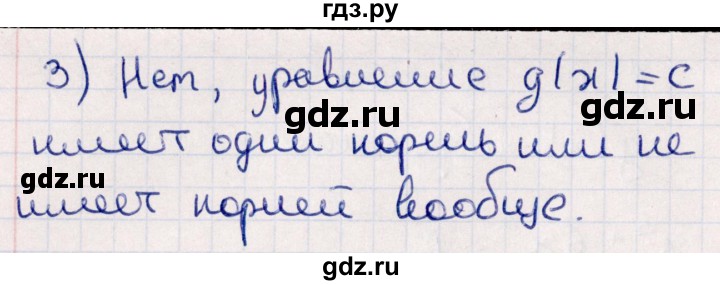 гдз.ру
3) Нет, уравнение g(x)=c
gdz.ru gdz.ru
имеет один корень или не
gdz.ru
имеет корней вообще.
gdz.ru
gdz.ru